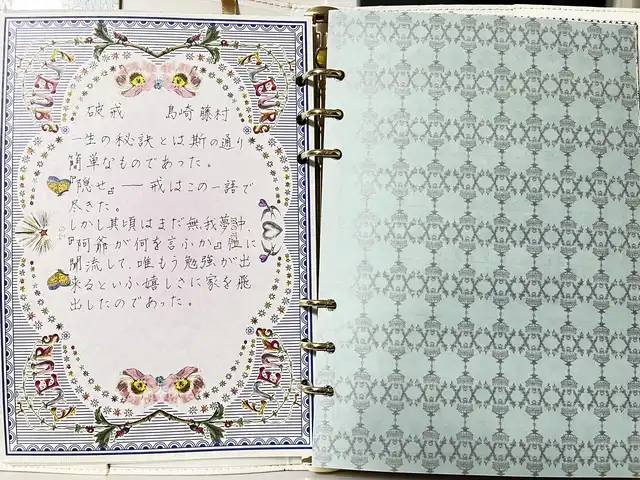 破戒 島崎藤村
一生の秘訣とは斯の通り
簡単なものであった。
『隠せ』── 戒はこの一語で
尽きた。
しかし其頃はまだ無我夢中、
『阿爺が何を言ふか』位に
聞流して、唯もう勉強が出
来るといふ嬉しさに家を飛
出したのであった。
FLEURS
FLEURS
FLEURS
FLEURS